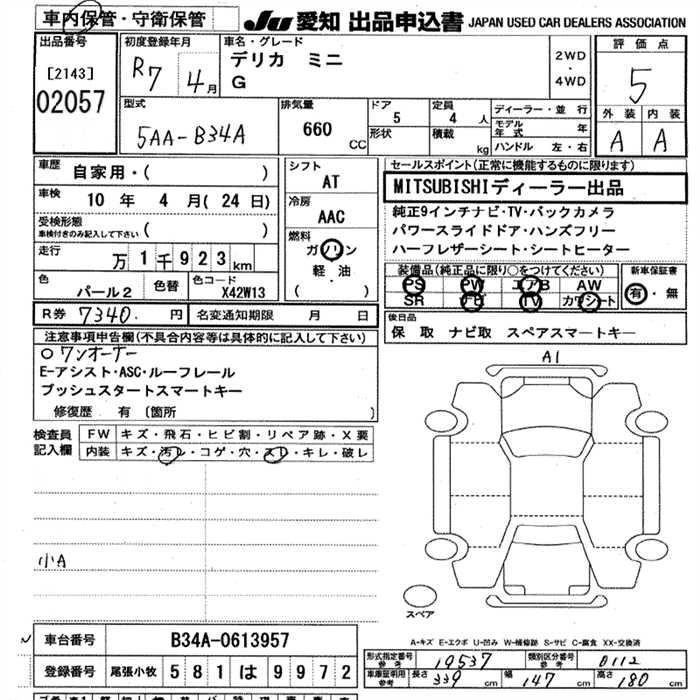 車内保管・守衛保管
JU 愛知 出品申込書 JAPAN USED CAR DEALERS ASSOCIATION
出品番号 [2143] 02057
初度登録年月 R7 4月
車名・グレード デリカ ミニ G
2WD・4WD
評価点 5
外装 内装
A A
型式 5AA-B34A
排気量 660 CC
ドア 5
形状
定員 4 人
積載 kg
ディーラー・並行
モデル年式 年
ハンドル 左・右
車歴 自家用・( )
車検 10 年 4 月(24 日)
受検形態 車検付きのみ記入して下さい ( )
走行 万 1千923 km
色 パール2 色替 色コード X42W13
シフト AT
冷房 AAC
燃料 ガソリン 軽・油 ( )
セールスポイント(正常に機能するものに限ります)
MITSUBISHIディーラー出品
純正9インチナビ・TV・バックカメラ
パワースライドドア・ハンズフリー
ハーフレザーシート・シートヒーター
装備品(純正品に限り○をつけてください)
PS PW エアB AW
SR ナビ TV カワシート
新車保証書 有・無
R券 7340 円 名変通知期限 月 日
後日品
保 取 ナビ取 スペアスマートキー
注意事項申告欄(不具合内容等は具体的に記入して下さい)
○ワンオーナー
E-アシスト・ASC・ルーフレール
プッシュスタートスマートキー
修復歴 有 〔箇所 〕
検査員記入欄
FW キズ・飛石・ヒビ割・リペア跡・X要
内装 キズ・汚レ・コゲ・穴・スレ・キレ・破レ
A1
小A
スペア
A-キズ E-エクボ U-凹み W-補修跡 S-サビ C-腐食 XX-交換済
車台番号 B34A-0613957
登録番号 尾張小牧 581 は 9972
形式指定番号 参考 19537 類別区分番号 参考 0112
車庫証明用 参考 長さ 339 cm 幅 147 cm 高さ 180 cm